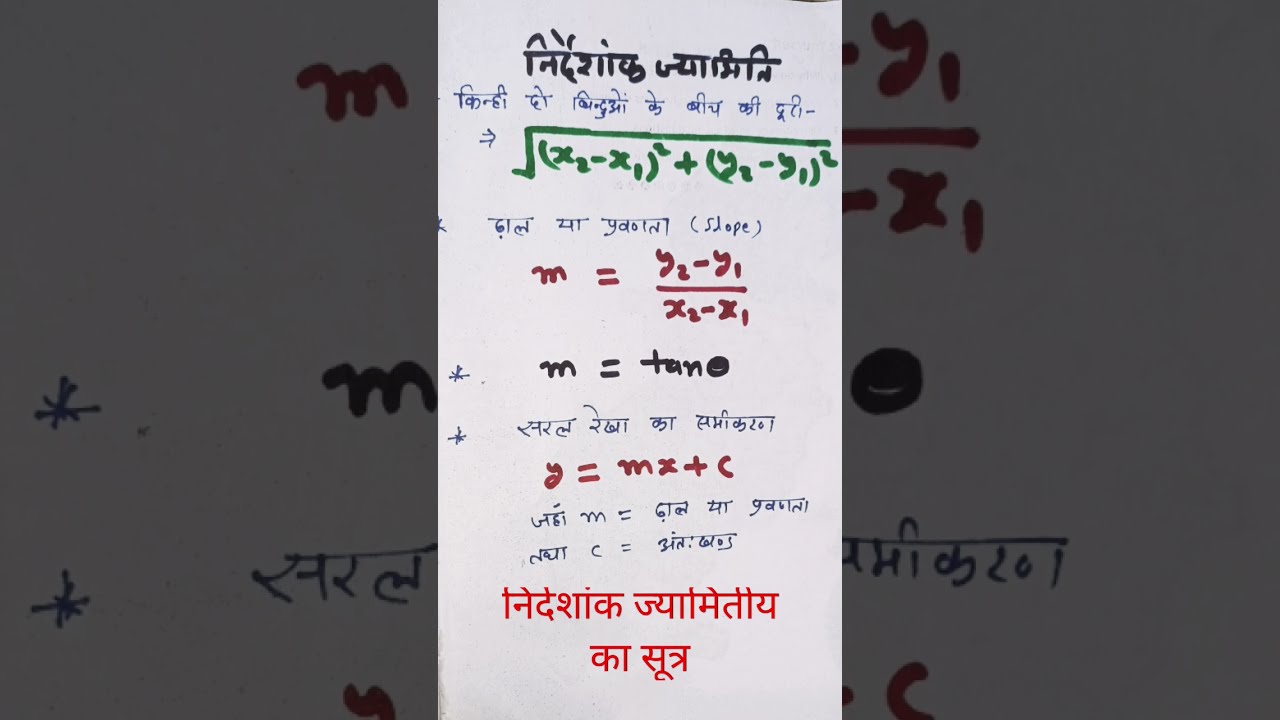 निर्देशांक ज्यामिति
किन्ही दो बिन्दुओं के बीच की दूरी-
→ √(x₂-x₁)²+(y₂-y₁)²
* ढ़ाल या प्रवणता (Slope)
m = y₂-y₁ / x₂-x₁
* m = tanθ
* सरल रेखा का समीकरण
y = mx+c
जहाँ m = ढ़ाल या प्रवणता
तथा c = अंतःखण्ड
निर्देशांक ज्यामितीय
का सूत्र